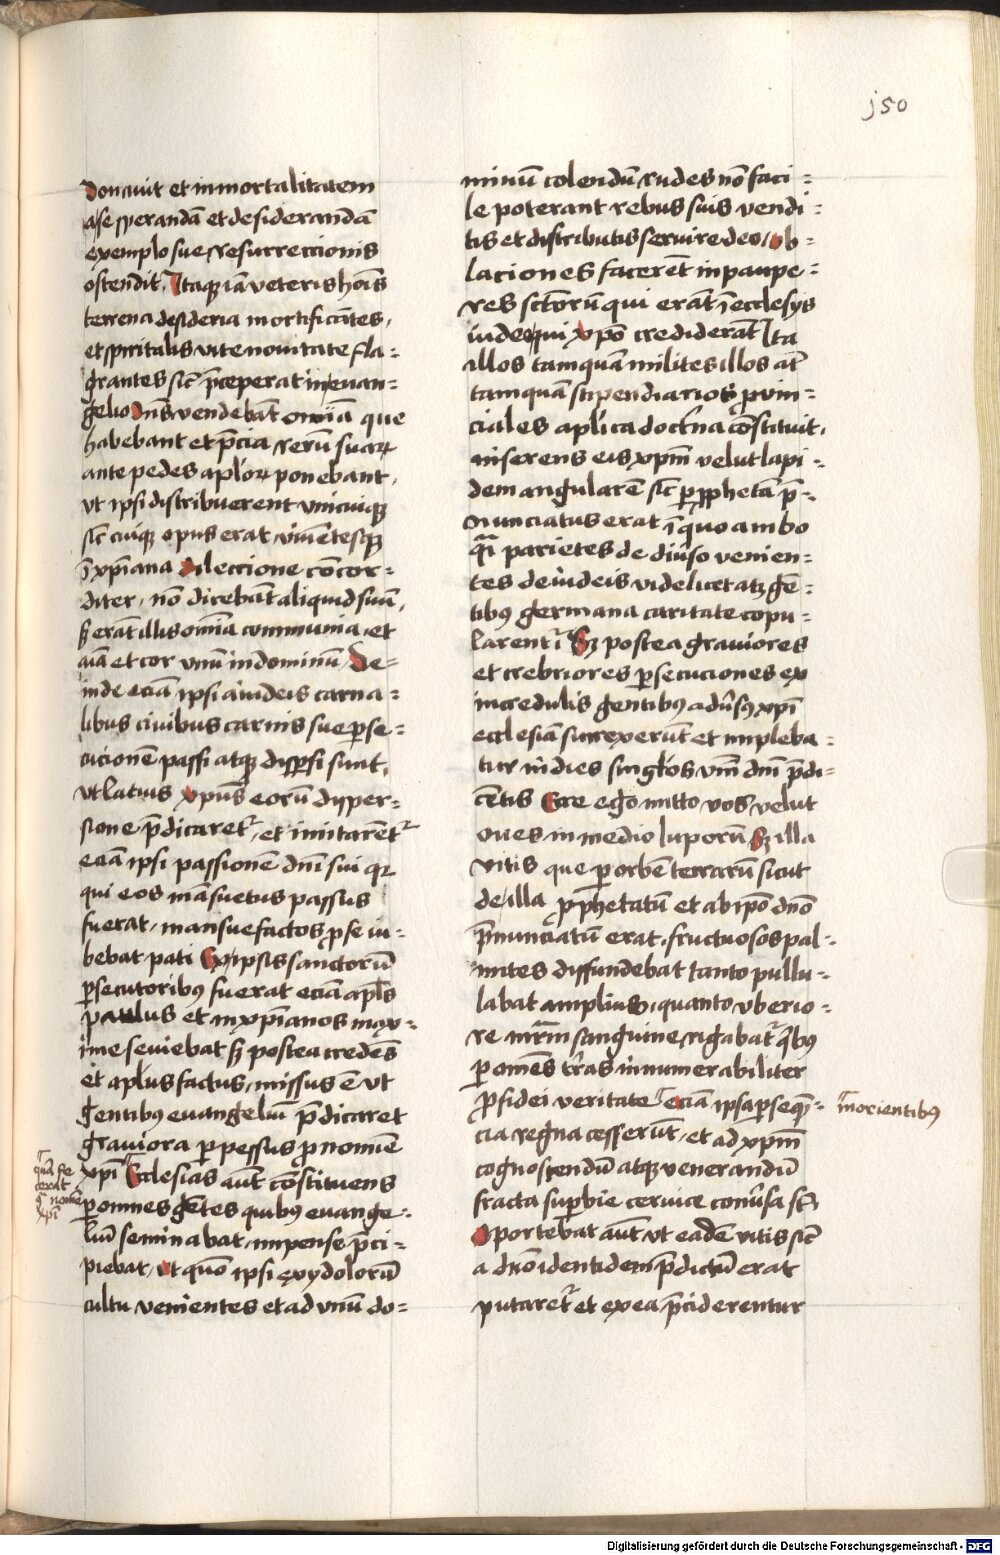 j50
donauit et inmortalitatem
a se sperandā et desiderandā
exemplo sue resurreccionis
ostendit. Itaqꝫ iā veteris hoīs
terrena desideria mortificātes,
et spiritalis vite nouitate fla=
grantes sic̄ p̄ceperat in euan=
gelio Dn̄s vendebāt omīa que
habebant et p̄cia rerū suarꝝ
ante pedes apl̄oꝝ ponebant,
vt ipsi distribuerent vnicuiqꝫ
sic̄ cuiqꝫ opus erat viuētesqꝫ
ī xp̄iana dileccione cōcor=
diter, nō dicebāt aliquid suū,
sꝫ erāt illis omīa communia, et
aīa et cor vnū in dominū, De=
inde eciā ipsi a iudeis carna=
libus ciuibus carnis sue ꝑse=
cucionē passi atqꝫ disꝑsi sūt,
vt lacius xp̄us eorū disper=
sione p̄dicaret᷑, et imitarēt᷑
eciā ipsi passionē dn̄i sui qꝛ
qui eos māsuetus passus
fuerat, mansuefactos ꝓ se iu=
bebat pati Ex ipsis sanctorū
ꝑsecutoribꝰ fuerat eciā apl̄s
paulus et in xp̄ianos max=
ime seuiebat sꝫ postea credēs
et apl̄us factus, missus ē vt
gentibus euangeliū p̄dicaret
grauiora perpessus ꝓ nomīe
xp̄i Ecclesias aūt cōstituens
quā fe
cerat
ꝯͣ nomē
xp̄i
ꝑ omnes gētes quibꝰ euange=
liū seminabat, impense p̄ci=
piebat, vt quō ipsi ex ydolorū
cultu venientes et ad vnū do=
minū colendū rudes nō faci=
le poterant rebus suis vendi=
tis et distributis seruire deo, ob=
laciones facerēt in paupe=
res sctōrū qui erāt ī ecclesiis
iudee qui xp̄o crediderāt Ita
illos tamquā milites illos aūt
tamquā stipendiarios ꝓuin=
ciales apl̄ica doctrīna cōstituit,
inserens eis xp̄m velut lapi=
dem angularē sic̄ ꝑ ꝓphetā p̄=
nunciatus erat ī quo ambo
qͣi parietes de diūso venien=
tes de iudeis videlicet atqꝫ gē=
tibꝰ germana caritate copu=
larent᷑ Sꝫ postea grauiores
et crebriores ꝑsecuciones ex
incredulis gentibꝰ adūsꝰ xp̄i
ecclesiā surrexerūt et impleba=
tur in dies singl̄os v̄m dn̄i p̄di=
cētis Ecce ego mitto vos velut
oues in medio luporū Sꝫ illa
vitis que ꝑ orbē terrarū sicut
de illa ꝓphetatū et ab ip̄o dn̄o
p̄nunciatū erat, fructuosos pal=
mites diffundebat tanto pullu=
labat amplius, quanto vberio=
re mr̄m sanguine rigabat᷑ q̄bꝰ
ꝑ omēs tr̄as innumerabiliter
ꝓ fidei veritate eciā ipsa ꝑsequē=
morientibꝰ
cia regna cesserūt, et ad xp̄m
cognoscendū atqꝫ venerandū
fracta suꝑbie ceruice conūsa st̄
Oportebat aūt vt eadē vitis sic̄
a dn̄o identidem p̄dictū erat
putaret᷑ et ex ea p̄ciderentur
Digitalisierung gefördert durch die Deutsche Forschungsgemeinschaft - DFG